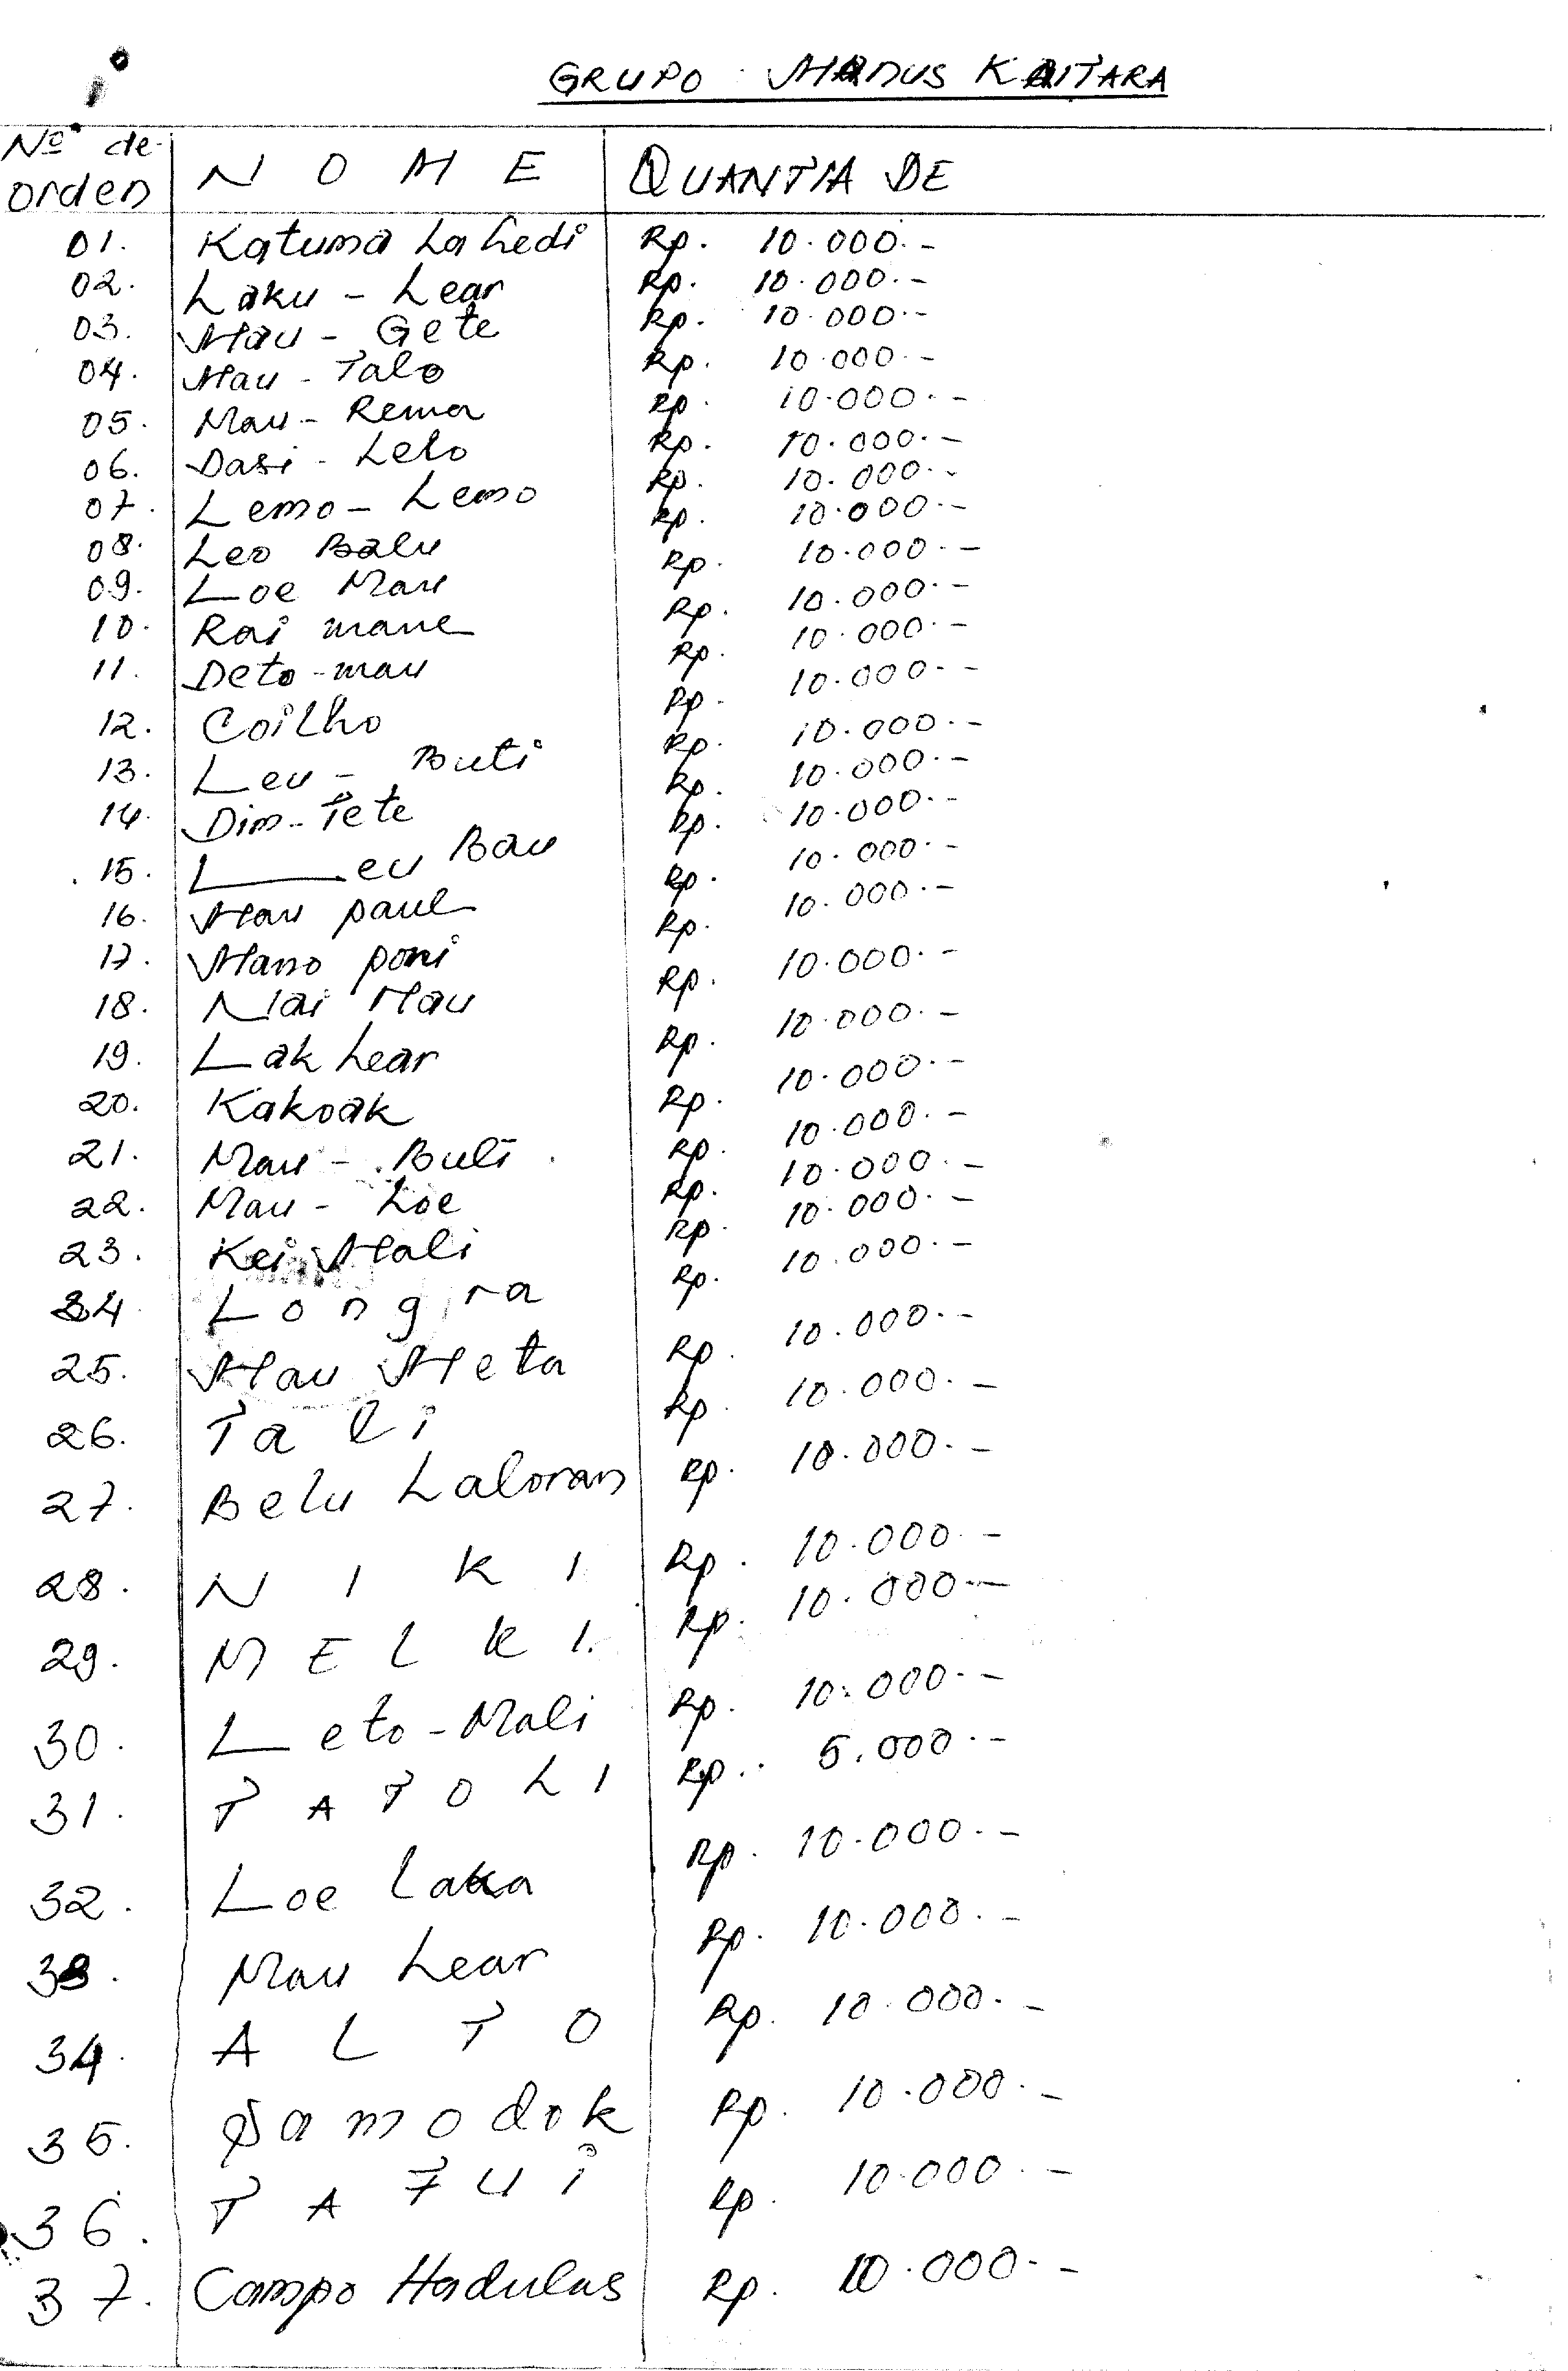 GRUPO MANUS KAITARA
Nº de orden NOME QUANTIA DE
01. Katuma La Ledi Rp. 10.000.-
02. Laku - Lear Rp. 10.000.-
03. Mau - Gete Rp. 10.000.-
04. Mau - Talo Rp. 10.000.-
05. Mau - Rema Rp. 10.000.-
06. Dasi - Leto Rp. 10.000.-
07. Lemo - Lemo Rp. 10.000.-
08. Leo Balu Rp. 10.000.-
09. Loe Mau Rp. 10.000.-
10. Rai mane Rp. 10.000.-
11. Deto - mau Rp. 10.000.-
12. Coilho Rp. 10.000.-
13. Leu - Buti Rp. 10.000.-
14. Dim - Tete Rp. 10.000.-
15. Leu Bau Rp. 10.000.-
16. Mau paul Rp. 10.000.-
17. Mano poni Rp. 10.000.-
18. Nai Mau Rp. 10.000.-
19. Lak Lear Rp. 10.000.-
20. Kakoak Rp. 10.000.-
21. Mau - Buti Rp. 10.000.-
22. Mau - Loe Rp. 10.000.-
23. Kei Mali Rp. 10.000.-
24. Longira Rp. 10.000.-
25. Mau Meta Rp. 10.000.-
26. Tali Rp. 10.000.-
27. Belu Laloran Rp. 10.000.-
28. NIKI Rp. 10.000.-
29. MELKI. Rp. 10.000.-
30. Leto - Mali Rp. 5.000.-
31. TATOLI Rp. 10.000.-
32. Loe Laka Rp. 10.000.-
33. Mau Lear Rp. 10.000.-
34. ALTO Rp. 10.000.-
35. Samodok Rp. 10.000.-
36. TAFUI Rp. 10.000.-
37. Campo Hadulas